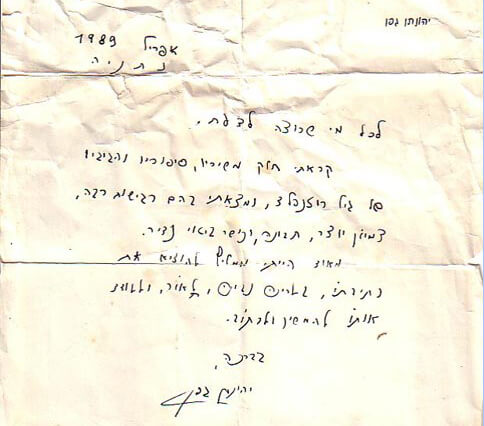 יהונתן גפן
אפריל 1989
נתניה
לכל מי שרוצה לדעת.
קראתי חלק משיריו, סיפוריו והגיגיו
של גיל רוזנבלצ, ומצאתי בהם רגישות רבה,
דמיון יוצר, תבונה, וכישר ביטוי נדיר.
מאוד הייתי ממליץ להוציא את
כתיבתו, לאור, ולעודד
אותו להמשיך ולכתוב.
בברכה,
יהונתן גפן